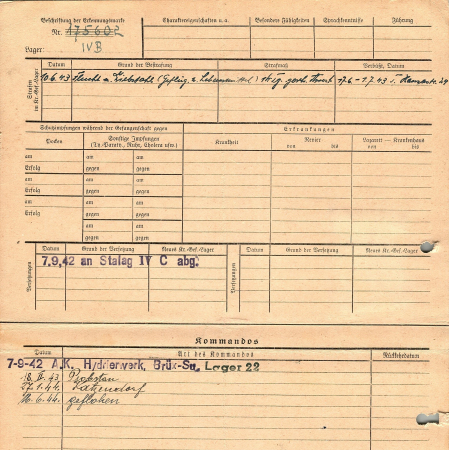 Beschriftung der Erkennungsmarke
Nr. 175602
Lager: IVB
Charaktereigenschaften u.a.
Besondere Fähigkeiten
Sprachkenntnisse
Führung
Strafen im Kr.-Gef.-Lager
Datum
Grund der Bestrafung
Strafmaß
Verbüßt, Datum
10.6.43 Flucht u.
17.6 - 1.7.43
Schutzimpfungen während der Gefangenschaft gegen
Erkrankungen
Pocken
Sonstige Impfungen
(Ty. Paraty., Ruhr, Cholera usw.)
Krankheit
Revier
von bis
Lazarett — Krankenhaus
von bis
am am am
Erfolg gegen gegen
am am am
Erfolg gegen gegen
am am am
Erfolg gegen gegen
am am
gegen gegen
am am
gegen gegen
Versetzungen
Datum
Grund der Versetzung
Neues Kr.-Gef.-Lager
Versetzungen
Datum
Grund der Versetzung
Neues Kr.-Gef.-Lager
7.9.42 an Stalag IV C abg.
Kommandos
Datum
Art des Kommandos
Rückkehrdatum
7-9-42 A.K. Hydrierwerk, Brüx-Su, Lager 22
43
17.1.44.
16.6.44. geflohen